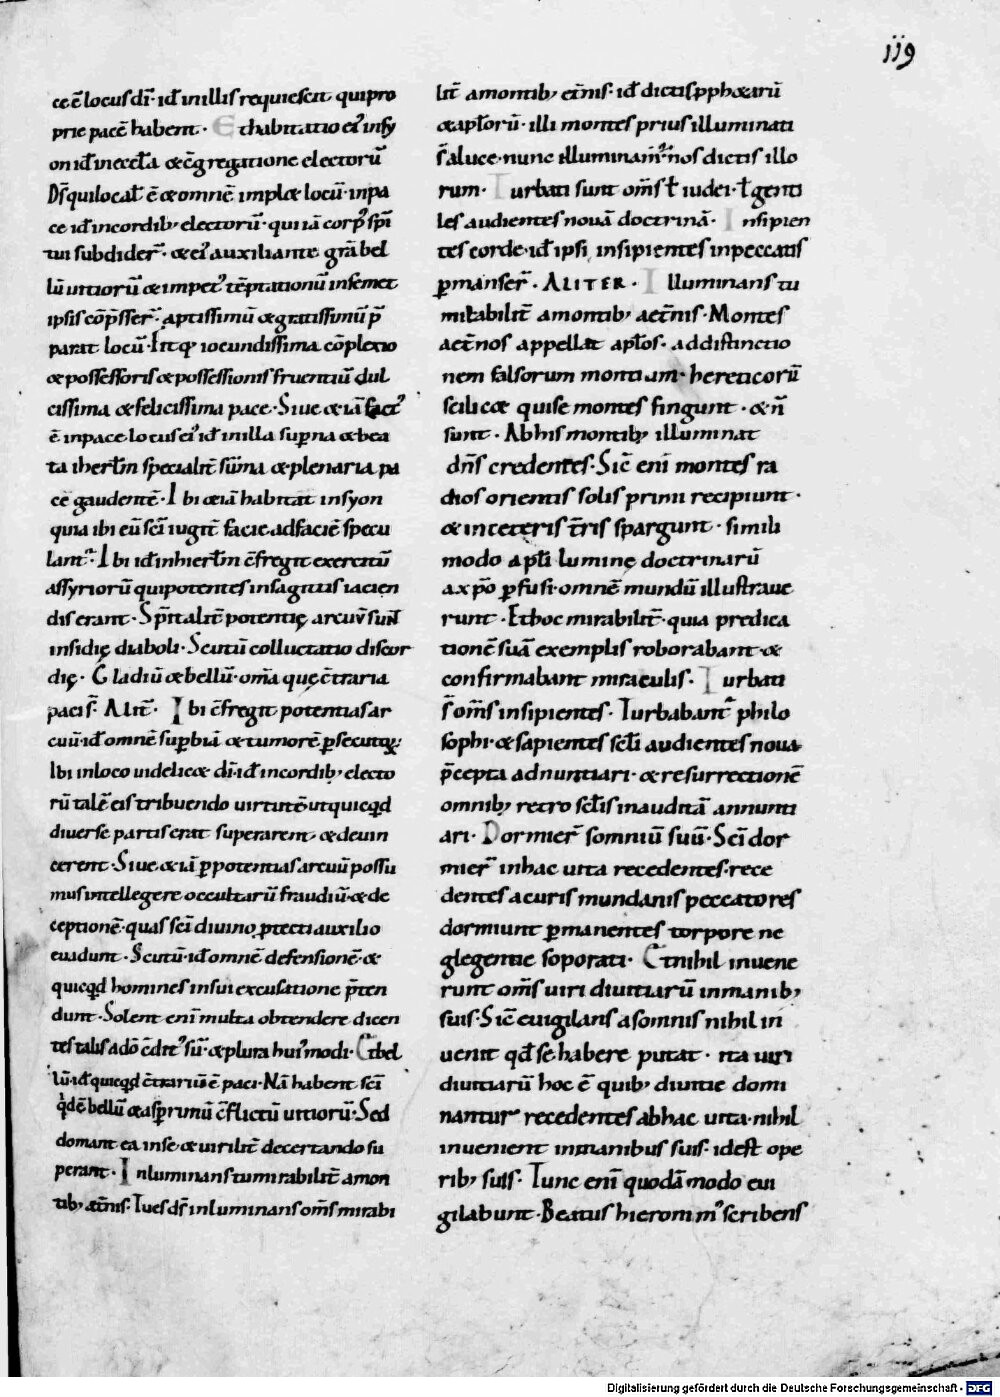 119
ce ē locus dī· id̄ inillis requiescit qui pro
prie pacē habent· Et habitatio ei᷒ insy
on id̄ in eccl̄a & c̄gregatione electorū
Ds̄ qui localr̄ ē & omnē impl& locū· inpa
ce id̄ incordib; electorū· qui iā corp᷒ sp̄i
tui subdider̄· & ei᷒ auxiliante gr̄a bel
lū uitiorū & impet᷒ tēptationū insemet
ipsis cōp̄sser̄· aptissimū & gratissimū p̄
parat locū· Itq; iocundissima cōplexio
& possessoris & possessionis fruentiū dul
cissima & felicissima pace· Siue & iā fact᷒
ē inpace locus ei᷒ id̄ inilla sup̄na & bea
ta ihertl̄m specialit̄ sūma & plenaria pa
cē gaudentē· Ibi & iā habitat insyon
quia ibi eū sc̄i iugit̄ facie adfaciē specu
lant᷒· Ibi id̄ inhiertl̄m c̄fregit exercitū
assyriorū qui potentes insagittis iacien
dis erant· Sp̄italit̄ potentię arcuū sunt̄
insidię diaboli· Scutū colluctatio discor
dię· Gladiū & bellū· om̄a quę c̄traria
pacis̄· Alit̄· Ibi c̄fregit potentias ar
cuū· id̄ omnē sup̄biā & tumorē p̄secutoꝝ·
Ibi inloco uidelic& dī· id̄ incordib; electo
rū talē eis tribuendo uirtutē ut quicq̄d
diuerse partis erat superarent & deuin
cerent· Siue & iā p̄ potentias arcuū possu
mus intellegere occultarū fraudiū & de
ceptionē· quas sc̄i diuino p̄tecti auxilio
euadunt· Scutū· id̄ omnē defensionē &
quicq̄d homines insui excusatione p̄ten
dunt· Solent enī multa obtendere dicen
tes talis adō c̄dit᷒ sū· & plura hui᷒modi· Et bel
lū· id̄ quicq̄d c̄trariū ē paci· Nā habent sc̄i
q̄dē bellū & asp̄rimū c̄flictū uitiorū· Sed
domant ea inse & uirilit̄ decertando su
perant· Inluminans tu mirabilit̄ amon
tib; ætn̄is· Tu es ds̄ inluminans om̄s mirabi
lit̄ amontib; et̄nis· id̄ dictis p̄ph&arū
& apl̄orū· illi montes prius illuminati
s̄ aluce· nunc illuminam᷒ nos dictis illo
rum· Turbati sunt om̄s ł iudei· ł genti
les audientes nouā doctrinā· Insipien
tes corde· id̄ ipsi insipientes inpeccatis
p̄manser̄· ALITER· Illuminans tu
mirabilit̄ amontib; aet̄nis· Montes
aet̄nos appellat apl̄os· addistinctio
nem falsorum montium· hereticorū
scilic& qui se montes fingunt· & n̄
sunt· Ab his montib; illuminat
dn̄s credentes· Sic̄ enī montes ra
dios orientis solis primi recipiunt·
& inceteris t̄ris spargunt· simili
modo apl̄i luminę doctrinarū
axp̄o p̄fusi· omnē mundū illustraue
runt· Et hoc mirabilit̄· quia predica
tionē suā exemplis roborabant &
confirmabant miraculis· Turbati
s̄ om̄s insipientes· Turbabant᷒ philo
sophi· & sapientes sc̄li audientes noua
p̄cepta adnuntiari· & resurrectionē
omnib; retro sc̄lis inauditā annunti
ari· Dormier̄ somniū suū· Sc̄i dor
mier̄ inhac uita recedentes· rece
dentes acuris mundanis peccatores
dormiunt p̄manentes torpore ne
glegentie soporati· Et nihil inuene
runt om̄s uiri diuitiarū inmanib;
suis· Sic̄ euigilans asomnis nihil in
uenit q̄d se habere putat· ita uiri
diuitiarū hoc ē quib; diuitie domi
nantur recedentes abhac uita· nihil
inuenient inmanibus suis· idest ope
rib; suis· Tunc enī quodā modo eui
gilabunt· Beatus hieronim᷒ scribens
Digitalisierung gefördert durch die Deutsche Forschungsgemeinschaft - DFG